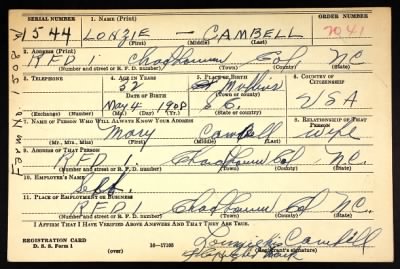 SERIAL NUMBER 1. NAME (Print) ORDER NUMBER
1544 LONZIE — CAMBELL 7041
(First) (Middle) (Last)
2. ADDRESS (Print)
RFD 1. Chadbourn Col NC
(Number and street or R. F. D. number) (Town) (County) (State)
3. TELEPHONE 4. AGE IN YEARS 5. PLACE OF BIRTH 6. COUNTRY OF CITIZENSHIP
32 Mullins
DATE OF BIRTH (Town or county)
May 4 1908 S.C. USA
(Exchange) (Number) (Mo.) (Day) (Yr.) (State or country)
7. NAME OF PERSON WHO WILL ALWAYS KNOW YOUR ADDRESS 8. RELATIONSHIP OF THAT PERSON
Mary Cambell wife
(Mr., Mrs., Miss) (First) (Middle) (Last)
9. ADDRESS OF THAT PERSON
RFD 1. Chadbourn Col NC.
(Number and street or R. F. D. number) (Town) (County) (State)
10. EMPLOYER'S NAME
Self.
11. PLACE OF EMPLOYMENT OR BUSINESS
RFD 1 Chadbourn Col NC.
(Number and street or R. F. D. number) (Town) (County) (State)
I AFFIRM THAT I HAVE VERIFIED ABOVE ANSWERS AND THAT THEY ARE TRUE.
REGISTRATION CARD
D. S. S. Form 1 (over) 16—17105
Cambell
(Registrant's signature)
mark